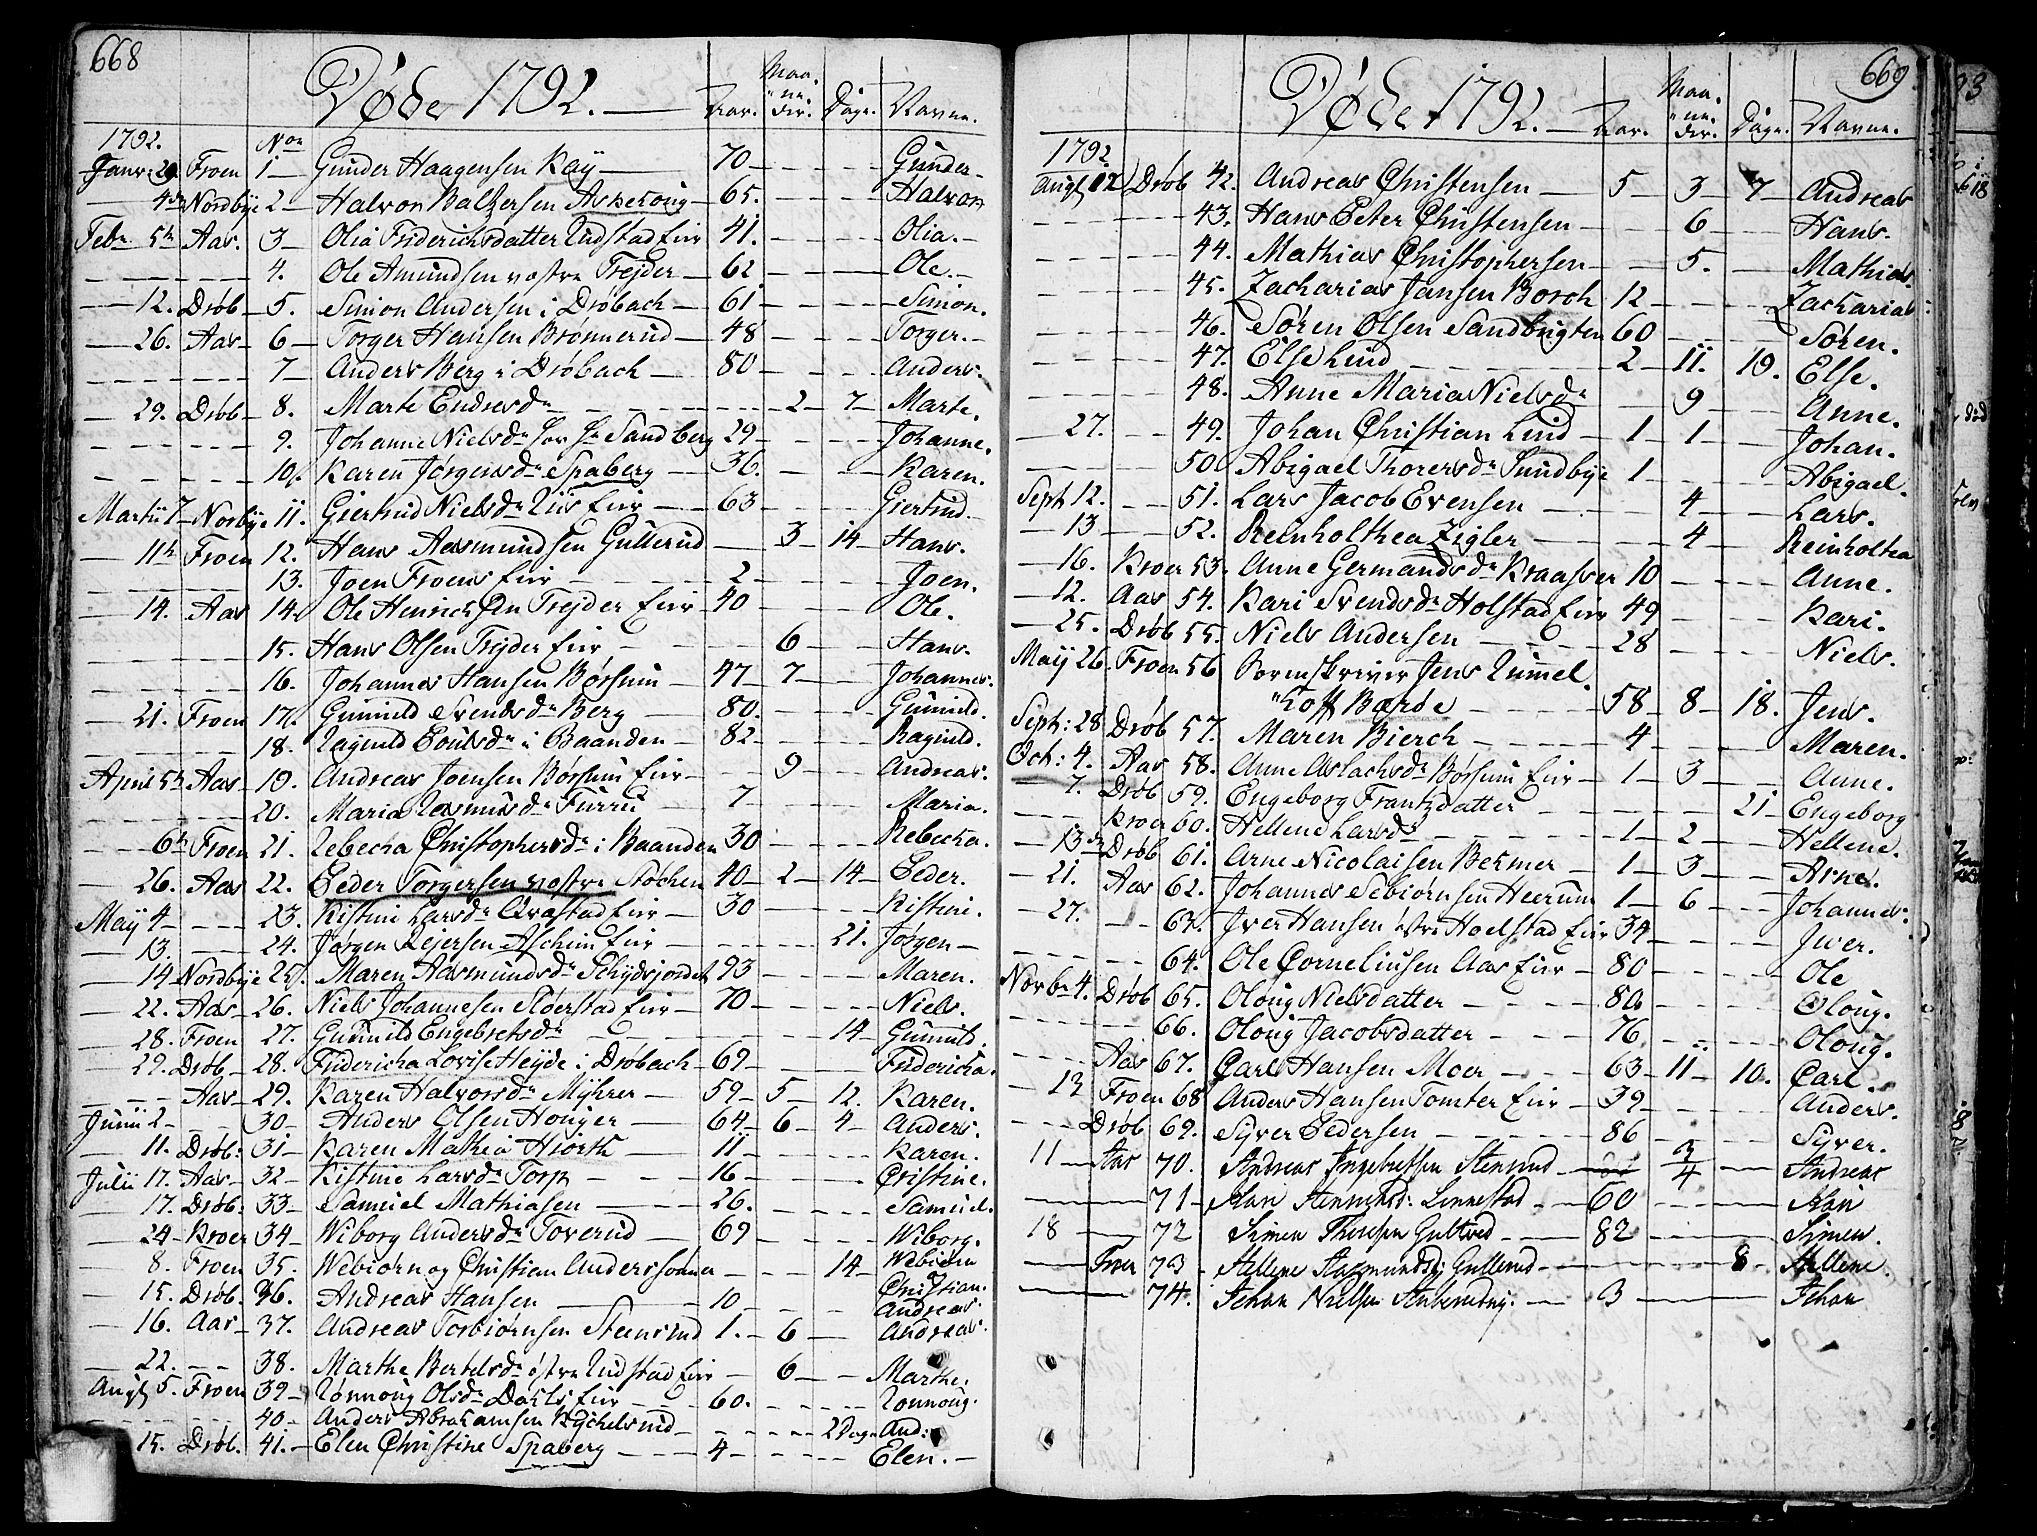 668
Døde 1792.
Aar. Maa„ne„der. Dage. Navne.
1792. Nor
Janv: 29. Froen 1 Gunder Haagensen Kay 70 Gunder
4de Nordbye 2 Halvor Balzersen Askekoug 65. Halvor
Febr. 5te Aas. 3 Olia Friderichsdatter Udstad Eie 41. Olia.
4. Ole Amundsen vestre Trejder 62 Ole.
12. Drøb 5. Simon Andersen i Drøbach 61 Simon.
26. Aas 6 Torger Hansen Brønnerud 48 Torger.
7 Anders Berg i Drøbach 80 Anders.
29. Drøb 8. Marte Endresdr 2 7 Marte.
9. Johanne Nielsdr Sandberg 29 Johanne.
10. Karen Jørgensdr Spaberg 36. Karen.
Martii 7 Norbye 11. Giertrud Nielsdr Uus Eie 63 Giertrud
11te Froen 12. Hans Aasmundsen Gullerud 3 14 Hans.
13. Joen Froens Eie 2 Joen.
14. Aas 14. Ole Henrichsen Trejder Eie 40 Ole.
15. Hans Olsen Trejder Eie 6 Hans.
16. Johannes Hansen Børsum 47 7 Johannes.
21. Froen 17. Gunnild Svendsdr Berg 80. Gunnild.
18. Ragnild Poulsdr i Baanden 82 Ragnild.
April 5te Aas 19. Andreas Joensen Børsum Eie 9 Andreas.
20. Maria Rasmusdr Furru 7 Maria.
6te Froen 21. Rebecha Christophersdr i Baanden 30 Rebecha.
26. Aas 22. Peder Torgersen vestre Støchen 40 2 14 Peder.
May 4 23. Kistine Larsdr Qvæstad Eie 30 Kistine.
13. 24. Jørgen Rejersen Aschim Eie 21. Jørgen
14 Nordbye 25. Maren Aasmundsdr Schydsjordet 93 Maren.
22. Aas 26. Niels Johannesen Støerstad Eie 70 Niels.
28. Froen 27. Gunnild Engebretsdr 14 Gunnild.
29. Drøb 28. Fridericha Lovise Heyde i Drøbach 69 Fridericha.
Aas 29. Karen Halvorsdr Myhrer 59 5 12. Karen.
Junii 2 30 Anders Olsen Houger 64 6 4 Anders.
11. Drøb: 31 Karen Mathia Hiorth 11 Karen.
Julii 17. Aas 32 Kistine Larsdr Torp 16 Cristine.
17. Drøb: 33 Samuel Mathiasen 26. Samuel.
24 Kroer 34 Wiborg Andersdr Toverud 69 Wiborg.
8. Froen 35. Webiørn og Christian Anderssønner 14 Webiørn
Christian.
15. Drøb. 36. Andreas Hansen 10 Andreas.
16. Aas 37. Andreas Torbiørnsen Steensrud 1. 6 Andreas.
22. 38. Marthe Bertelsdr østre Rudstad Eie 6 Marthe.
Augt 5. Froen 39 Rønnoug Olsdr Dahls Eie 60. Ronnoug.
40 Anders Abrahamsen Kychelsrud 2 Dage And:
15. Drøb. 41. Elen Christine Spaberg 4 Elen.
669
Døde 1792.
Aar. Maa„ne„der. Dage. Navne.
1792
Augt 12 Drøb 42. Andreas Christensen 5 3 7 Andreas
43. Hans Peter Christensen 6 Hans.
44. Mathias Christophersen 5. Mathias.
45. Zacharias Jansen Borch 12 Zacharias
46. Søren Olsen Sandbrigten 60 Søren.
47. Else Lind 2 11. 19. Else.
48. Anne Maria Nielsdr 9 Anne.
27. 49. Johan Christian Lind 1 1 Johan.
50. Abigael Thorersdr Sundbye 1 Abigael.
Sept 12. 51. Lars Jacob Evensen 4 Lars.
13 52. Reinholthea Zigler 4 Reinholthea
16. Kroer 53. Anne Germandsdr Kraasver 10 Anne.
12. Aas 54. Kari Svendsdr Holstad Eie 49 Kari.
25. Drøb 55. Niels Andersen 28 Niels.
May 26. Froen 56 Sorenskriver Jens Rummel„
„hoff Barde 58 8 18. Jens.
Sept: 28 Drøb 57. Maren Bierch 4 Maren.
Oct: 4. Aas 58. Anne Aslachsdr Børsum Eie 1 3 Anne.
7. Drøb 59. Engeborg Frantzdatter 21 Engeborg
Kroer 60. Hellene Larsdr 1 2 Hellene.
13de Drøb 61. Arne Nicolaisen Bekmer 1 3 Arne.
21. Aas 62. Johannes Sebiørnsen Heerum 1 6 Johannes.
27. 63. Jver Hansen østre Hoelstad Eie 34 Jver.
64. Ole Corneliusen Aas Eie 80 Ole
Novbr 4. Drøb 65. Oloug Nielsdatter 80. Oloug.
66. Oloug Jacobsdatter 76 Oloug.
Aas 67. Carl Hansen Moer 63 11 10. Carl.
13 Froen 68 Anders Hansen Tomter Eie 39 Anders.
Drøb 69. Syver Pedersen 86 Syver.
11 Aas 70. Andreas Ingebretsen Stensrud 3/4 Andreas
71 Kari Linnestad 60 Kari
18 72 Simen Gultved 82 Simen.
Froen 73 Hellene Aasmundsd: Gullerud 8 Hellene.
74. Johan Nielsen 3 Johan